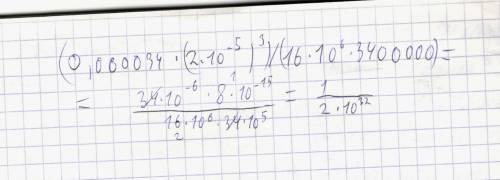 (0,000034 · (2·10⁻⁵)³)/(16·10⁶·3400000) =
= 34·10⁻⁶ · 8¹·10⁻¹⁵ / 16₂·10⁶·34·10⁵ = 1 / 2·10³²